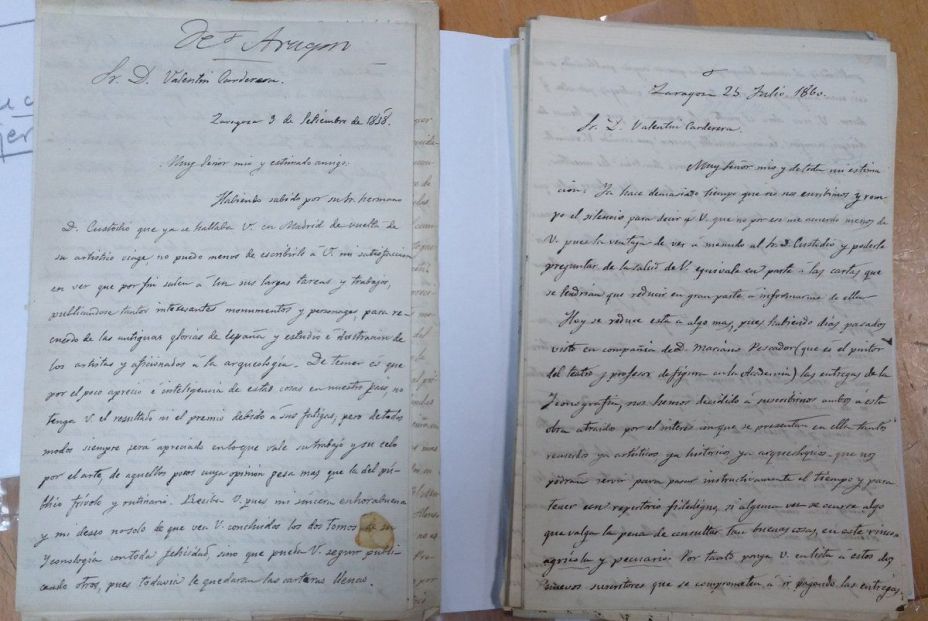 De Aragon
Sr. D. Valentin Carderera.
Zaragoza 3 de Setiembre de 1858.
Muy Señor mio y estimado amigo:
Habiendo sabido por su hermano
D. Custodio que ya se hallaba V. en Madrid de vuelta de
su artistico viage no puedo menos de escribirle á V. mi satisfaccion
en ver que por fin salen á luz sus largas tareas y trabajos,
publicandose tantos interesantes monumentos y personages para re-
cuerdo de las antiguas glorias de España y estudio é ilustracion de
los artistas y aficionados á la arqueologia. De temer es que
por el poco aprecio é inteligencia de estas cosas en nuestro pais, no
tenga V. el resultado ni el premio debido á sus fatigas, pero de todos
modos siempre será apreciado en lo que vale su trabajo y su celo
por el arte, de aquellos pocos cuya opinion pesa mas que la del pú-
blico frívolo y rutinario. Reciba V. pues mi sincera enhorabuena
y mi deseo no solo de que vea V. concluidos los dos tomos de su
Yconología con toda felicidad, sino que pueda V. seguir publi-
cando otros, pues todavia le quedaran las carteras llenas.
Zaragoza 25 Julio 1860.
Sr. D. Valentin Carderera.
Muy Señor mio y de toda mi estima
cion: Ya hace demasiado tiempo que no nos escribimos y rom-
po el silencio para decir á V. que no por eso me acuerdo menos de
V. pues la ventaja de ver á menudo al Sr. D. Custodio y poderle
preguntar de la salud de V. equivale en parte á las cartas que
se tendrian que reducir en gran parte á informarme de ella
Hoy se reduce esta á algo mas, pues habiendo dias pasados
visto en compañia de D. Mariano Pescador (que es el pintor
del teatro y profesor de figura en la Academia) las entregas de la
Iconografia, nos hemos decidido á suscribirnos ambos á esta
obra atraido por el interes con que se presentan en ella tantos
recuerdos ya artísticos ya históricos ya arqueológicos que nos
podran servir para pasar instructivamente el tiempo y para
tener un repertorio fidedigno, si alguna vez se ocurre algo
que valga la pena de consultar tan buenas cosas, en este
agrícola y pecuario. Por tanto ponga V. en lista á estos dos
nuevos suscritores que se comprometen á ir pagando las entregas